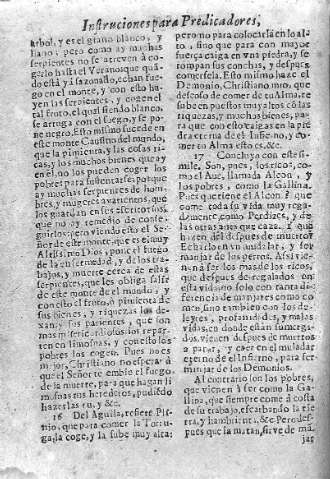 Instruciones para Predicadores,
arbol, y es el grano blanco, y
llano; pero como ay muchas
serpientes no se atreven à co-
gerlo hasta el Verano; que quã-
do està yà sazonado, echan fue-
go en el monte, y con esto hu-
yen las serpientes, y cogen el
tal fruto, el qual siendo blanco,
se arruga con el fuego, y se po-
ne negro. Esto mismo sucede en
este monte Caustro del mundo,
que la pimienta, y las cosas ri-
cas, y los muchos bienes que ay
en el, no los pueden coger los
pobres para sustentarse, porque
ay muchas serpientes de hom-
bres, y mugeres avarientos, que
los guardan en sus escritorios,
que no ay remedio de coste-
garlos; pero viendo esto el Se-
ñor de este monte, que es el muy
Altissimo Dios, pone el fuego
de la enfermedad, y de los tra-
bajos, y muerte cerca de estas
serpientes, que les obliga salir
de este monte de el mundo; y
con esto el fruto, ò pimienta de
sus bienes, y riquezas los de-
xan; y sus parientes, que son
mas misericordiosos los repar-
ten en limosnas, y con esto los
pobres los cogen. Pues no es
mejor, Christiano, sin esperar à
que el Señor te embie el fuego
de la muerte, para que hagan li-
mosnas tus herederos, pudiẽdo
hazerlas tu, y &c.
16 Del Aguila, refiere Pli-
nio, que para comer la Tortu-
ga, la coge, y la sube muy alta:
pero no para colocarla en lo al-
to, sino que para con mayor
fuerça caiga en vna piedra, y se
rompan sus conchas, y despues
comersela. Esto mismo haze el
Demonio, Christiano mio, que
deseoso de comer de tu Alma, te
sube en puestos muy altos cõ las
riquezas, y muchos bienes, pa-
ra que con esto caigas en la pie-
dra eterna de el Infierno, y co-
mer tu Alma esto es, &c.
17 Concluyo con este si-
mil. Son, pues, los ricos, co-
mo el Ave, llamada Alcon, y
los pobres, como la Gallina.
Pues que tiene el Alcon? que
come toda su vida muy rega-
damente, como Perdizes, y de
las otras aves que caza. Y què
hazen del despues de muerto?
Echarlo en vn muladar, y ser
manjar de los perros. Assi vie-
nen à ser los mas de los ricos,
que despues de regalados en
esta vida, no solo con tanta di-
ferencia de manjares como co-
men, sino tambien con los de-
leytes, profanidades, y malas
vidas, en donde estàn sumergi-
dos, vienen despues de muertos
à parar, y caer en el muladar
eterno de el Infierno, para ser
manjar de los Demonios.
Al contrario son los pobres,
que vienen à ser como la Ga-
llina, que siempre come à costa
de su trabajo, escarbando la tie-
rra, y hambrienta, &c. Pero des-
pues que la matan, sirve de mã-
jar